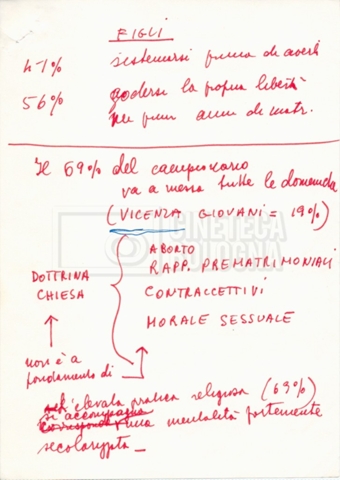 FIGLI
47% sistemarsi prima di averli
56% godersi la propria libertà
nei primi anni di matr.
Il 69% del campionario
va a messa tutte le domeniche
(VICENZA GIOVANI = 19%)
ABORTO
RAPP. PREMATRIMONIALI
CONTRACCETTIVI
MORALE SESSUALE
DOTTRINA
CHIESA
non è a
fondamento di
all'elevata pratica religiosa (69%)
si accompagna
corrisponde una mentalità fortemente
secolarizzata
CINETECA
BOLOGNA